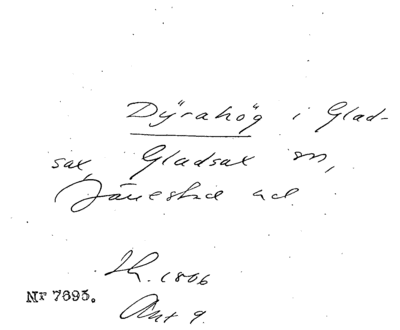 Dÿrahög i Glad-
sax, Gladsax sn,
Järrestad hd
Sk. 1806
Akt 9.
Nr 7695.